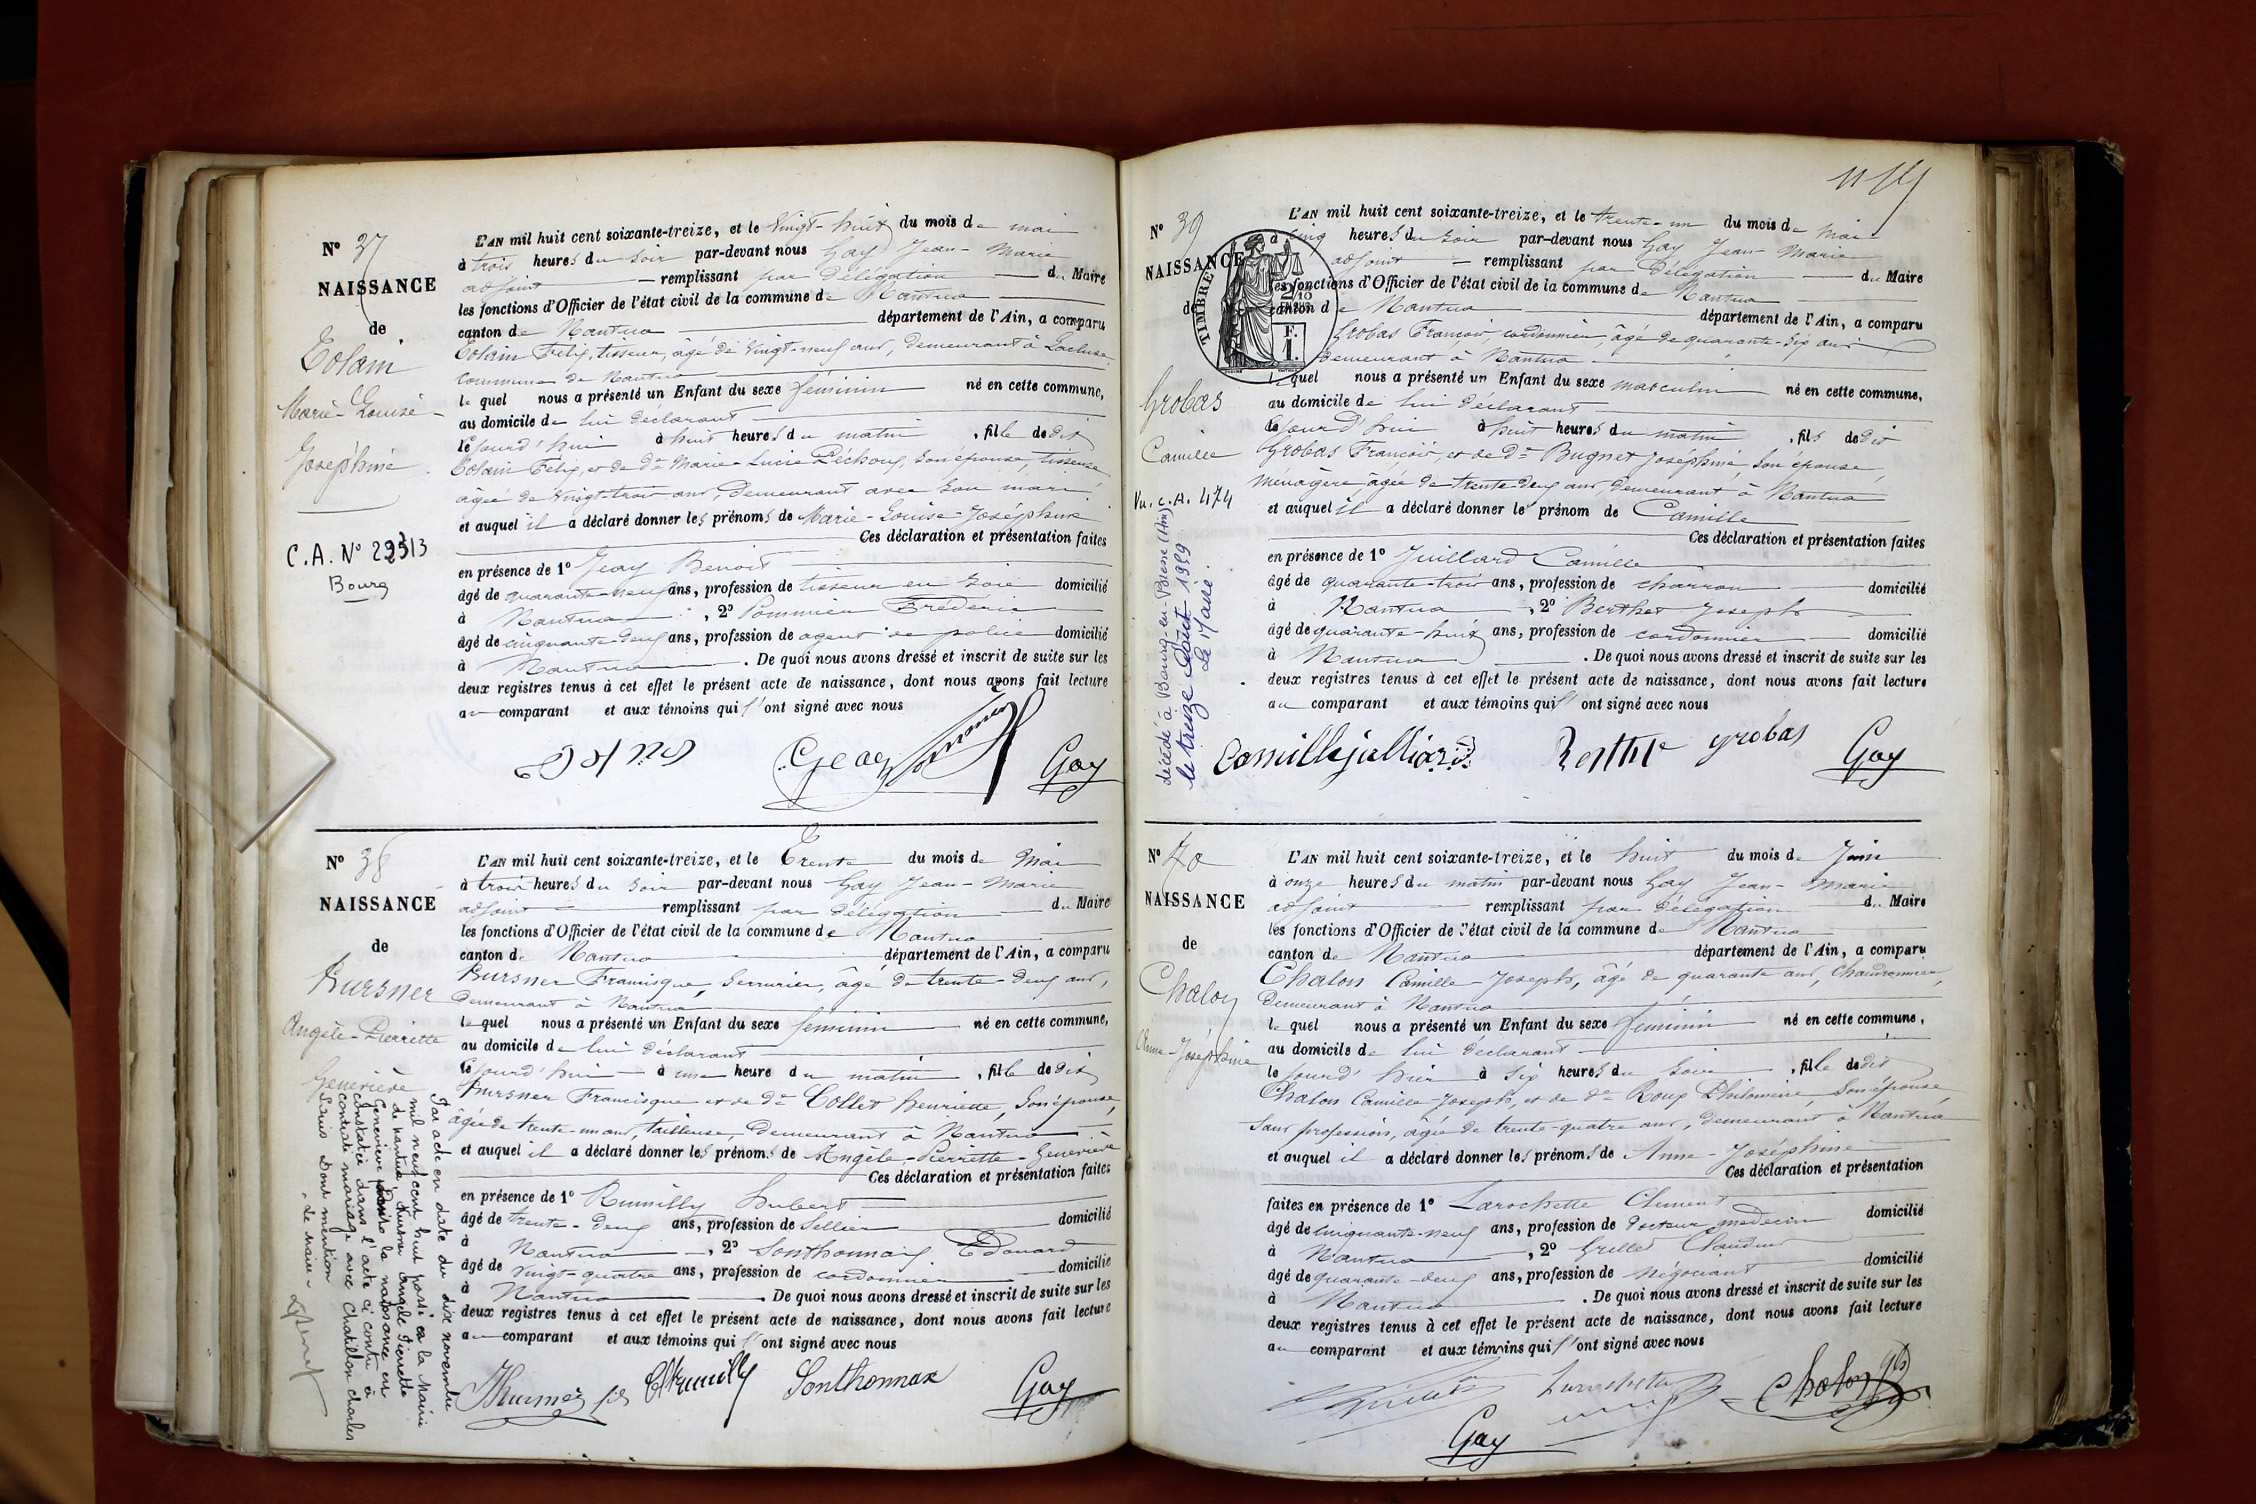 N° 37
NAISSANCE
de
Tolain
Marie-Louise-
Joséphine
C.A. N° 22313
Bourg
L'AN mil huit cent soixante-treize, et le Vingt-huit du mois de mai
à trois heures du soir par-devant nous Gay Jean-Marie
adjoint remplissant par délégation du Maire
les fonctions d'Officier de l'état civil de la commune de Nantua
canton de Nantua département de l'Ain, a comparu
Tolain Félix, tisseur, âgé de vingt-neuf ans, demeurant à Lacluse
commune de Nantua
lequel nous a présenté un Enfant du sexe féminin né en cette commune,
au domicile de lui déclarant
le jourd'hui à huit heures du matin, fille de dit
Tolain Félix, et de de Marie-Lucie, son épouse, tisseuse
âgée de vingt-trois ans, demeurant avec son mari
et auquel il a déclaré donner les prénoms de Marie-Louise-Joséphine
Ces déclaration et présentation faites
en présence de 1° Jeay Benoit
âgé de quarante-neuf ans, profession de tisseur en soie domicilié
à Nantua, 2° Pommier Frédéric
âgé de cinquante-deux ans, profession de agent de police domicilié
à Nantua. De quoi nous avons dressé et inscrit de suite sur les
deux registres tenus à cet effet le présent acte de naissance, dont nous avons fait lecture
au comparant et aux témoins qui l'ont signé avec nous
Gay
N° 38
NAISSANCE
de
Kursner
Angèle-Pierrette
Geneviève
Par acte en date du dix novembre
mil neuf cent huit passé en la Mairie
de nantua, Kursner Angèle Pierrette
Geneviève dont la naissance est
constatée dans l'acte ci contre a
contracté mariage avec Chatillon Charles
Louis Dont mention
Le Maire
L'AN mil huit cent soixante-treize, et le Trente du mois de Mai
à trois heures du soir par-devant nous Gay Jean-Marie
adjoint remplissant par délégation du Maire
les fonctions d'Officier de l'état civil de la commune de Nantua
canton de Nantua département de l'Ain, a comparu
Kursner Francisque, serrurier, âgé de trente-deux ans,
demeurant à Nantua
lequel nous a présenté un Enfant du sexe féminin né en cette commune,
au domicile de lui déclarant
le jourd'hui à une heure du matin, fille de dit
Kursner Francisque et de de Collet henriette, son épouse,
âgée de trente-un ans, tailleuse, demeurant à Nantua
et auquel il a déclaré donner les prénoms de Angèle-Pierrette-Geneviève
Ces déclaration et présentation faites
en présence de 1° Rumilly hubert
âgé de trente-deux ans, profession de sellier domicilié
à Nantua, 2° Sonthonnax Edouard
âgé de vingt-quatre ans, profession de cordonnier domicilié
à Nantua. De quoi nous avons dressé et inscrit de suite sur les
deux registres tenus à cet effet le présent acte de naissance, dont nous avons fait lecture
au comparant et aux témoins qui l'ont signé avec nous
Rumilly Sonthonnax Gay
N° 39
NAISSANCE
de
Grobas
Camille
Vu. C.A. 474
décédé à Bourg-en-Bresse (Ain)
le treize Août 1959
Le Maire.
TIMBRE
2/10
EN SUS
F.
1.
L'AN mil huit cent soixante-treize, et le trente-un du mois de Mai
à cinq heures du soir par-devant nous Gay Jean-Marie
adjoint remplissant par délégation du Maire
les fonctions d'Officier de l'état civil de la commune de Nantua
canton de Nantua département de l'Ain, a comparu
Grobas François, cordonnier, âgé de quarante-six ans
demeurant à Nantua
lequel nous a présenté un Enfant du sexe masculin né en cette commune,
au domicile de lui déclarant
le jourd'hui à huit heures du matin, fils de dit
Grobas François, et de de Bugnet Joséphine, son épouse,
ménagère âgée de trente-deux ans, demeurant à Nantua
et auquel il a déclaré donner le prénom de Camille
Ces déclaration et présentation faites
en présence de 1° Juillard Camille
âgé de quarante-trois ans, profession de charron domicilié
à Nantua, 2° Berthet Joseph
âgé de quarante-huit ans, profession de cordonnier domicilié
à Nantua. De quoi nous avons dressé et inscrit de suite sur les
deux registres tenus à cet effet le présent acte de naissance, dont nous avons fait lecture
au comparant et aux témoins qui l'ont signé avec nous
Camille julliard grobas Gay
N° 40
NAISSANCE
de
Chalon
Anne-Joséphine
L'AN mil huit cent soixante-treize, et le huit du mois de Juin
à onze heures du matin par-devant nous Gay Jean-Marie
adjoint remplissant par délégation du Maire
les fonctions d'Officier de l'état civil de la commune de Nantua
canton de Nantua département de l'Ain, a comparu
Chalon Camille-Joseph, âgé de quarante ans, Chaudronnier,
demeurant à Nantua
lequel nous a présenté un Enfant du sexe féminin né en cette commune,
au domicile de lui déclarant
le jourd'hier à six heures du soir, fille de dit
Chalon Camille-Joseph, et de de Roux Philomène, son épouse,
sans profession, âgée de trente-quatre ans, demeurant à Nantua
et auquel il a déclaré donner les prénoms de Anne-Joséphine
Ces déclaration et présentation
faites en présence de 1° Larochette Clement
âgé de cinquante-neuf ans, profession de docteur médecin domicilié
à Nantua, 2° Grillet Claudius
âgé de quarante-deux ans, profession de négociant domicilié
à Nantua. De quoi nous avons dressé et inscrit de suite sur les
deux registres tenus à cet effet le présent acte de naissance, dont nous avons fait lecture
au comparant et aux témoins qui l'ont signé avec nous
Chalon
Gay